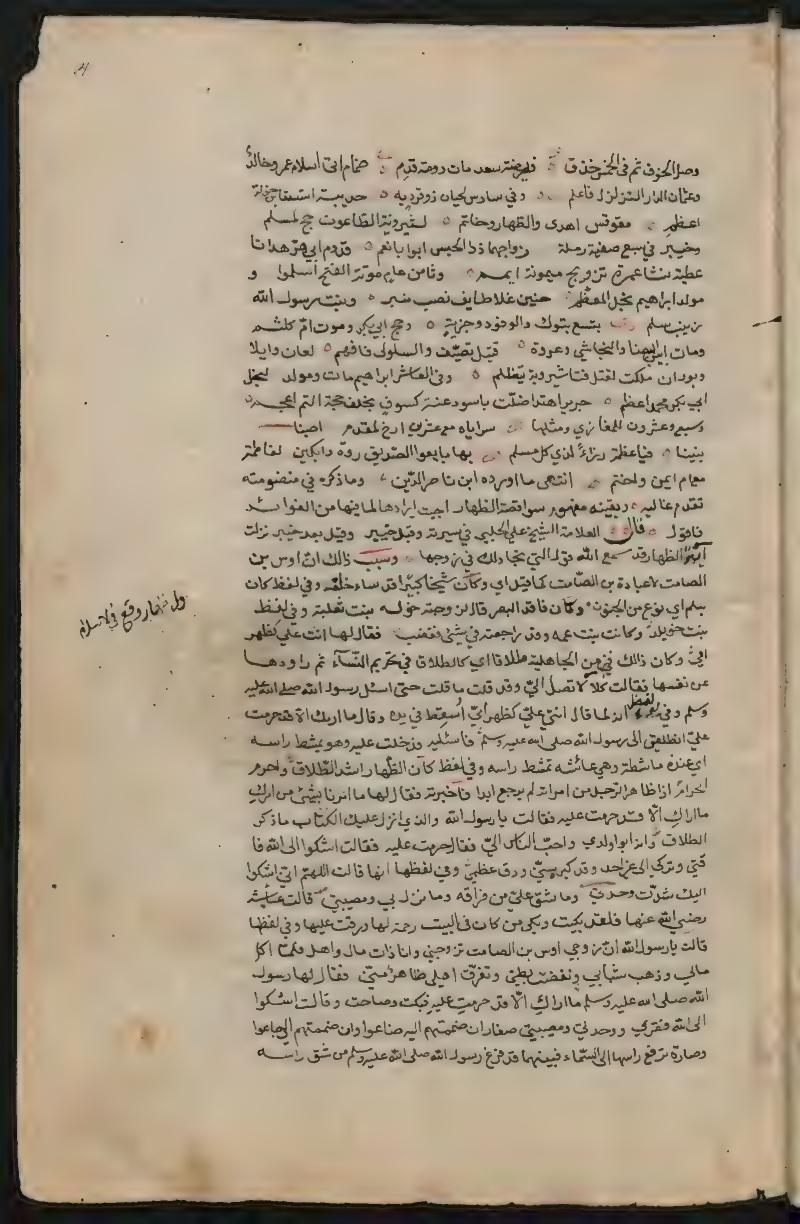 وصل الخوف ثم في الخمس خندق قريضة سعد مات دومة قدم ضمام اتى اسلام عمرو خالد
وعثمان الدار التزلزل فاعلم وفي سادس لحيان ذو قرد به حديبية استسقا
اعظم مقوقس اهدى والظهار وخاتم لشيرويه الطاعون حج لمسلم
وخيبر في سبع صفية رملة زواجهما ذا الحبس ابوا بانعم قدوم ابي هر هدانا
عطية عمرة تزويج ميمونة ايم وثامن عام موتة الفتح اسلموا و
مولد ابراهيم نجل المعظم حنين غلا طايف نصب منبر وبنت رسول الله
زينب سلم بتسع تبوك والوفود وجزية وحج ابي بكر وموت ام كلثم
ومات ابن البيضا والنجاشي وعروة قتيل ثقيف والسلولي فافهم لعان وايلا
وبوران ملكت لقتل فتا شيرويه بتظلم وفي العاشر ابراهيم مات ومولد لنجل
ابي بكر محمد اعظم جرير اهتدا ضلت باسود عنسة كسوف بخلف حجة التم
وسبع وعشرون المغازي ومثلها سراياه مع عشرين ارخ المقدم اصبنا
بنينا فياعظم رزء لذي كل مسلم بها بايعوا الصديق ردة وابكين لفاطمة
مع ام ايمن واختم انتهى ما اورده ابن ناصر الدين وما ذكره في منضومته
تقدم غاليه وبقيته مفهوم سوا قصة الظهار احببت ايرادها لما فيها من الفوائد
فاقول قال العلامة الشيخ علي الحلبي في سيرته وقبل خيبر وقيل بعد خيبر نزلت
آية الظهار قد سمع الله قول التي تجادلك في زوجها وسبب ذالك ان اوس بن
الصامت لاعبادة بن الصامت كما قيل اي وكان شيخا كبيرا قد ساء خلقه وفي لفظ كان
بلم اي نوع من الجنون وكان فاقد البصر قال لزوجته خوله بنت ثعلبة وفي لفظ
بنت خويلد وكانت بنت عمه وقد راجعته في شئ فغضب فقال لها انت علي كظهر
امي وكان ذالك في زمن الجاهلية طلاقا اي كالطلاق في تحريم النساء ثم راودها
عن نفسها فقالت كلا لا تصل الي وقد قلت ما قلت حتى اسئل رسول الله صلى الله عليه
وسلم وفي لفظ انه لما قال انتي علي كظهر امي اسقط في يده وقال ما اراك الا قد حرمت
علي انطلقي الى رسول الله صلى الله عليه وسلم فاسئليه فدخلت عليه وهو يمشط راسه
اي عنده ماشطة وهي عائشه تمشط راسه وفي لفظ كان الظهار اشد الطلاق واحرم
احرام اذا ظاهر الرجل من امراته لم يرجع ابدا فاخبرته فقال لها ما امرنا بشئ من امرك
ما اراك الا قد حرمت عليه فقالت يا رسول الله والذي انزل عليك الكتاب ما ذكر
الطلاق وانه ابو اولدي واحب الناس الي فقال حرمت عليه فقالت اشكوا الى الله فا
قتي وتركي الى غير احد وقد كبر سني ورق عظمي وفي لفظ انها قالت اللهم اني اشكوا
اليك شدت وحدتي وما شق علي من فراقه وما نزل بي ومصيبتي قالت عائشة
رضي الله عنها فلقد بكيت وبكى من كان في البيت رحمة لها ورقت عليها وفي لفظ
قالت يا رسول الله ان زوجي اوس بن الصامت تزوجني وانا ذات مال واهل فلما اكل
مالي وذهب شبابي ونفضت بطني وتفرق اهلي ظاهر مني فقال لها رسول
الله صلى الله عليه وسلم ما اراك الا قد حرمت عليه فبكت وصاحت وقالت اشكوا
الى الله فقري ووحدتي ومصيبتي صغار ان ضممتهم اليه ضاعوا وان ضممتهم الي جاعوا
وصارة ترفع راسها الى السماء فبينهما قد فرغ رسول الله صلى الله عليه وسلم من شق راسه
اول ظهار وقع في الاسلام